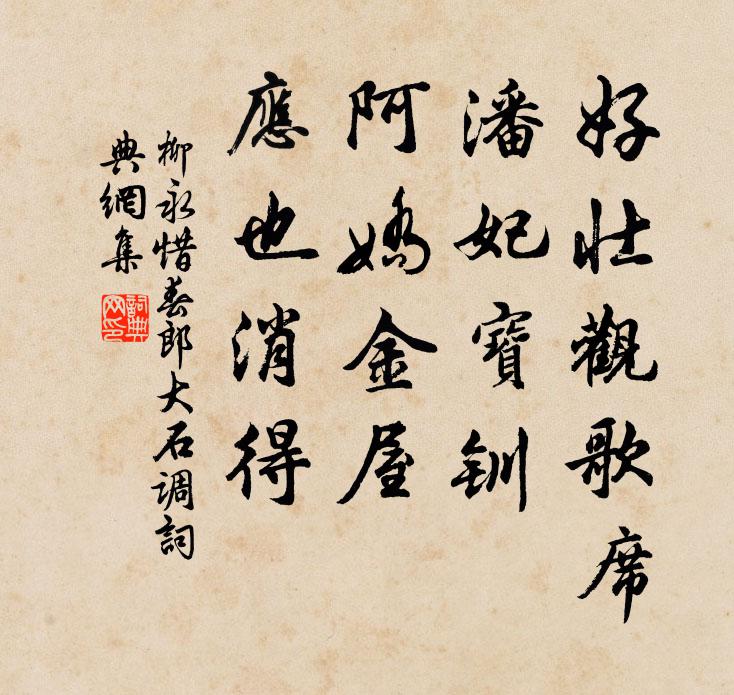 好壯觀歌席
潘妃寶釧
阿嬌金屋
應也消得
柳永惜春郎大石调詞
典網集
詞典網印